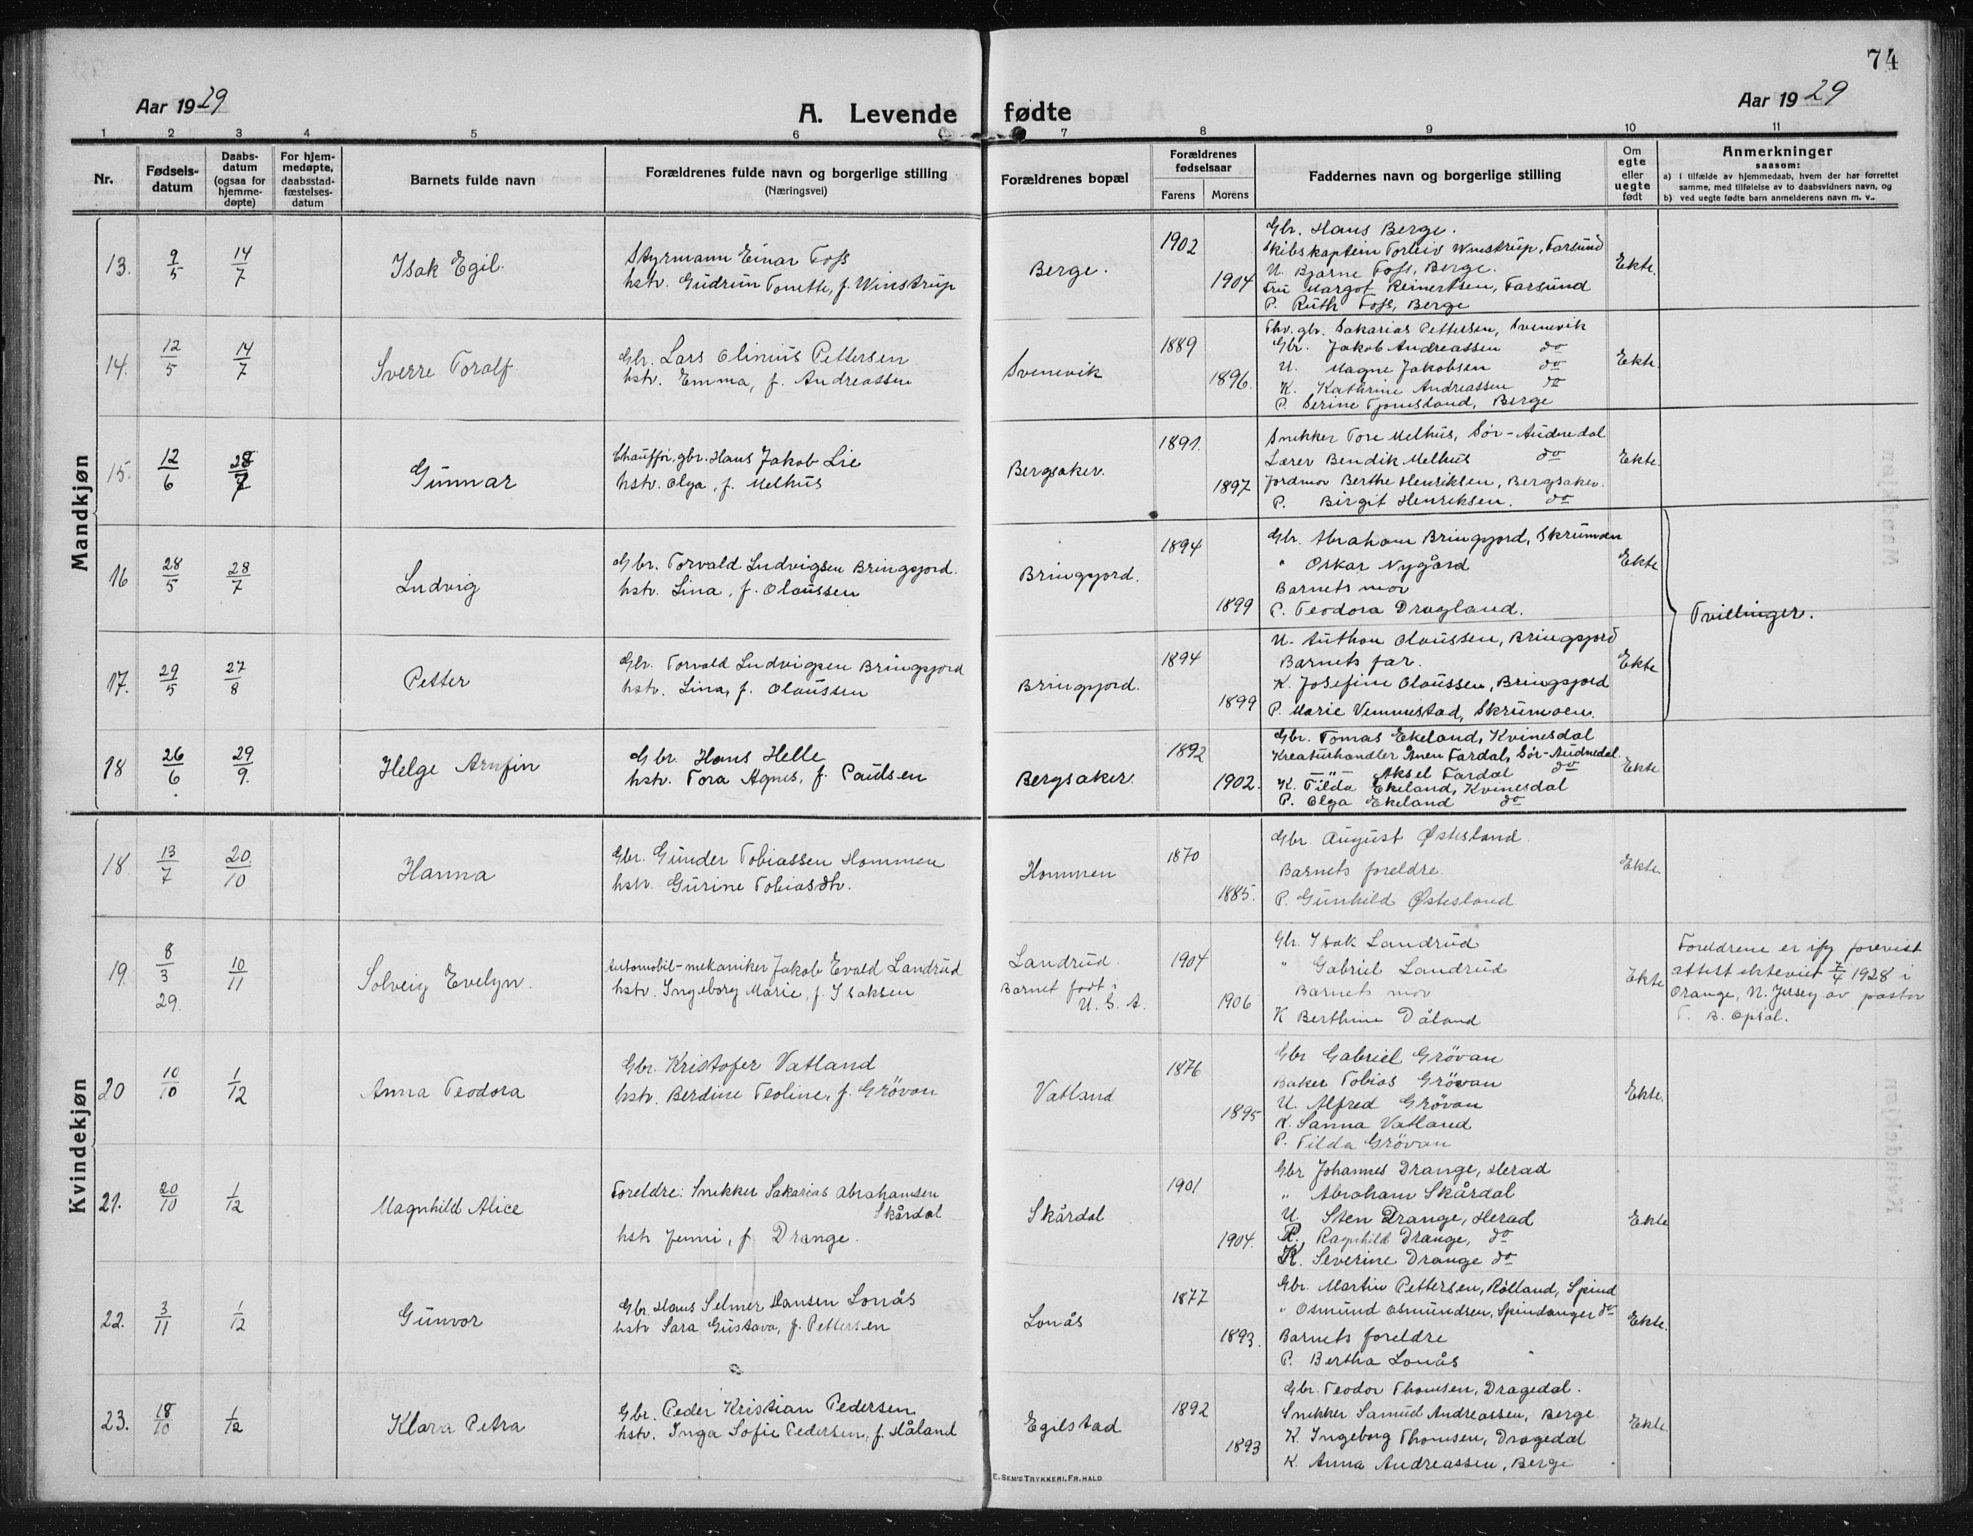 74
Aar 1929
A. Levende fødte
Aar 1929
1 2 3 4 5 6 7 8 9 10 11
Nr.
Fødsels-
datum
Daabs-
datum
(ogsaa for
hjemme-
døpte)
For hjem-
medøpte,
daabsstad-
fæstelses-
datum
Barnets fulde navn
Forældrenes fulde navn og borgerlige stilling
(Næringsvei)
Forældrenes bopæl
Forældrenes
fødselsaar
Farens Morens
Faddernes navn og borgerlige stilling
Om
egte
eller
uegte
født
Anmerkninger
saasom:
a) i tilfælde av hjemmedaab, hvem der har forrettet
samme, med tilføielse av to daabsvidners navn, og
b) ved uegte fødte barn anmelderens navn m. v..
Mandkjøn
13. 9/5 14/7 Isak Egil.
Styrmann Einar Foss
hstr. Gudrun Tonette, f. Winstrup
Berge.
1902
1904
Gbr. Hans Berge.
Skibskaptein Torleiv Winstrup, Farsund
U. Bjarne Foss, Berge.
Fru Margot Reinertsen, Farsund
P. Ruth Foss, Berge
Ekte.
14. 12/5 14/7 Sverre Toralf
Gbr. Lars Olinius Pettersen
hstr. Emma, f. Andreassen
Svenevik
1889
1896.
Fhv. gbr. Sakarias Pettersen, Svenevik
Gbr. Jakob Andreassen do
U. Magne Jakobsen do
K. Kathrine Andreassen do
P. Serine Tjomsland, Berge
Ekte.
15. 12/6 28/7 Gunnar
Chauffør, gbr. Hans Jakob Lie
hstr. Olga, f. Melhus
Bergsaker.
1891.
1897
Snekker Tore Melhus, Sør-Audnedal
Lærer Bendik Melhus do
Jordmor Berthe Henriksen, Bergsaker.
P. Birgit Henriksen. do
Ekte.
16 28/5 28/7 Ludvig
Gbr. Torvald Ludvigsen Bringsjord.
hstr. Lina, f. Olaussen
Bringsjord.
1894
1899
Gbr. Abraham Bringsjord, Skrumoen
" Oskar Nygård
Barnets mor
P. Teodora Dragland.
Ekte
Tvillinger.
17. 29/5 27/8 Petter
Gbr. Torvald Ludvigsen Bringsjord
hstr. Lina, f. Olaussen
Bringsjord.
1894
1899
U. Anthon Olaussen, Bringsjord
Barnets far.
K. Josefine Olaussen, Bringsjord
P. Marie Vemmestad, Skrumoen.
Ekte
18 26/6 29/9. Helge Arnfin
Gbr. Hans Helle
hstr. Tora Agnes, f. Paulsen
Bergsaker.
1892
1902.
Gbr. Tomas Ekeland, Kvinesdal
Kreaturhandler Anen Fardal, Sør-Audnedal.
— " — Aksel Fardal do
K. Tilda Ekeland, Kvinesdal
P. Olga Ekeland do
Ekte
Kvindekjøn
18. 13/7 20/10 Hanna
Gbr. Gunder Tobiassen Hommen
hstr. Gurine Tobiasdtr.
Hommen
1870
1885.
Gbr August Østesland.
Barnets foreldre.
P. Gunhild Østesland
Ekte.
19. 8/3 29. 10/11 Solveig Evelyn.
Automobil-mekaniker Jakob Evald Landrud
hstr. Ingeborg Marie, f. Isaksen
Landrud.
Barnet født i
U. S. A.
1904
1906
Gbr. Isak Landrud
" Gabriel Landrud
Barnets mor
K Berthine Dåland
Ekte
Foreldrene er ifg forevist
attest ekteviet 7/4 1928 i
Orange, N. Jersey av pastor
T. B. Opsal.
20 10/10 1/12 Anna Teodora
Gbr. Kristofer Vatland
hstr. Berdine Teoline, f. Grövan
Vatland
1876
1895
Gbr Gabriel Grövan
Baker Tobias Grövan
U. Alfred Grövan
K. Sanna Vatland
P. Tilda Grövan
Ekte.
21. 20/10 1/12 Magnhild Alice
Foreldre: Snekker Sakarias Abrahamsen
Skårdal
hstr Jenni, f Drange.
Skårdal
1901
1904.
Gbr Johannes Drange, Herad
" Abraham Skårdal
U. Sten Drange, Herad
P. Ragnhild Drange, do
K. Severine Drange do
Ekte
22. 3/11 1/12 Gunvor
Gbr. Hans Selmer Hansen Lonås
hstr Sara Gustava, f. Pettersen
Lonås
1877
1893.
Gbr. Martin Pettersen, Rölland, Spind
" Osmund Osmundsen, Spindanger do
Barnets foreldre
P. Bertha Lonås
Ekte.
23. 18/10 1/12 Klara Petra
Gbr. Peder Kristian Pedersen
hstr. Inga Sofie Pedersen, f. Håland
Egilstad
1892
1893
Gbr. Teodor Thomsen, Dragedal.
Snekker Samuel Andreassen, Berge
K. Ingeborg Thomsen, Dragedal
K. Anna Andreassen, Berge
Ekte.
E. SEM'S TRYKKERI, FR.HALD